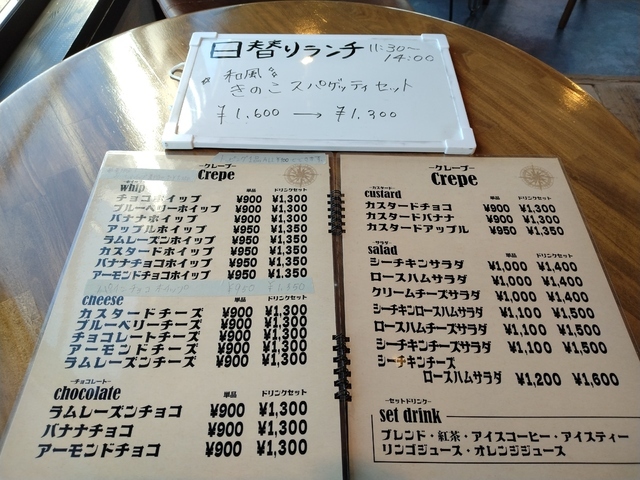 日替りランチ 11:30~
14:00
和風
きのこ スパゲッティセット
¥1,600 → ¥1,300
クレープ
Crepe
whip 単品 ドリンクセット
チョコホイップ ¥900 ¥1,300
ブルーベリーホイップ ¥900 ¥1,300
バナナホイップ ¥900 ¥1,300
アップルホイップ ¥950 ¥1,350
ラムレーズンホイップ ¥950 ¥1,350
カスタードホイップ ¥950 ¥1,350
バナナチョコホイップ ¥950 ¥1,350
アーモンドチョコホイップ ¥950 ¥1,350
チョコホイップ ¥950 ¥1,350
cheese 単品 ドリンクセット
カスタードチーズ ¥900 ¥1,300
ブルーベリーチーズ ¥900 ¥1,300
チョコレートチーズ ¥900 ¥1,300
アーモンドチーズ ¥900 ¥1,300
ラムレーズンチーズ ¥900 ¥1,300
チョコレート
chocolate 単品 ドリンクセット
ラムレーズンチョコ ¥900 ¥1,300
バナナチョコ ¥900 ¥1,300
アーモンドチョコ ¥900 ¥1,300
クレープ
Crepe
カスタード
custard 単品 ドリンクセット
カスタードチョコ ¥900 ¥1,300
カスタードバナナ ¥900 ¥1,300
カスタードアップル ¥950 ¥1,350
サラダ
salad 単品 ドリンクセット
シーチキンサラダ ¥1,000 ¥1,400
ロースハムサラダ ¥1,000 ¥1,400
クリームチーズサラダ ¥1,000 ¥1,400
シーチキンロースハムサラダ ¥1,100 ¥1,500
ロースハムチーズサラダ ¥1,100 ¥1,500
シーチキンチーズサラダ ¥1,100 ¥1,500
シーチキンチーズ
ロースハムサラダ ¥1,200 ¥1,600
セットドリンク
set drink
ブレンド・紅茶・アイスコーヒー・アイスティー
リンゴジュース・オレンジジュース